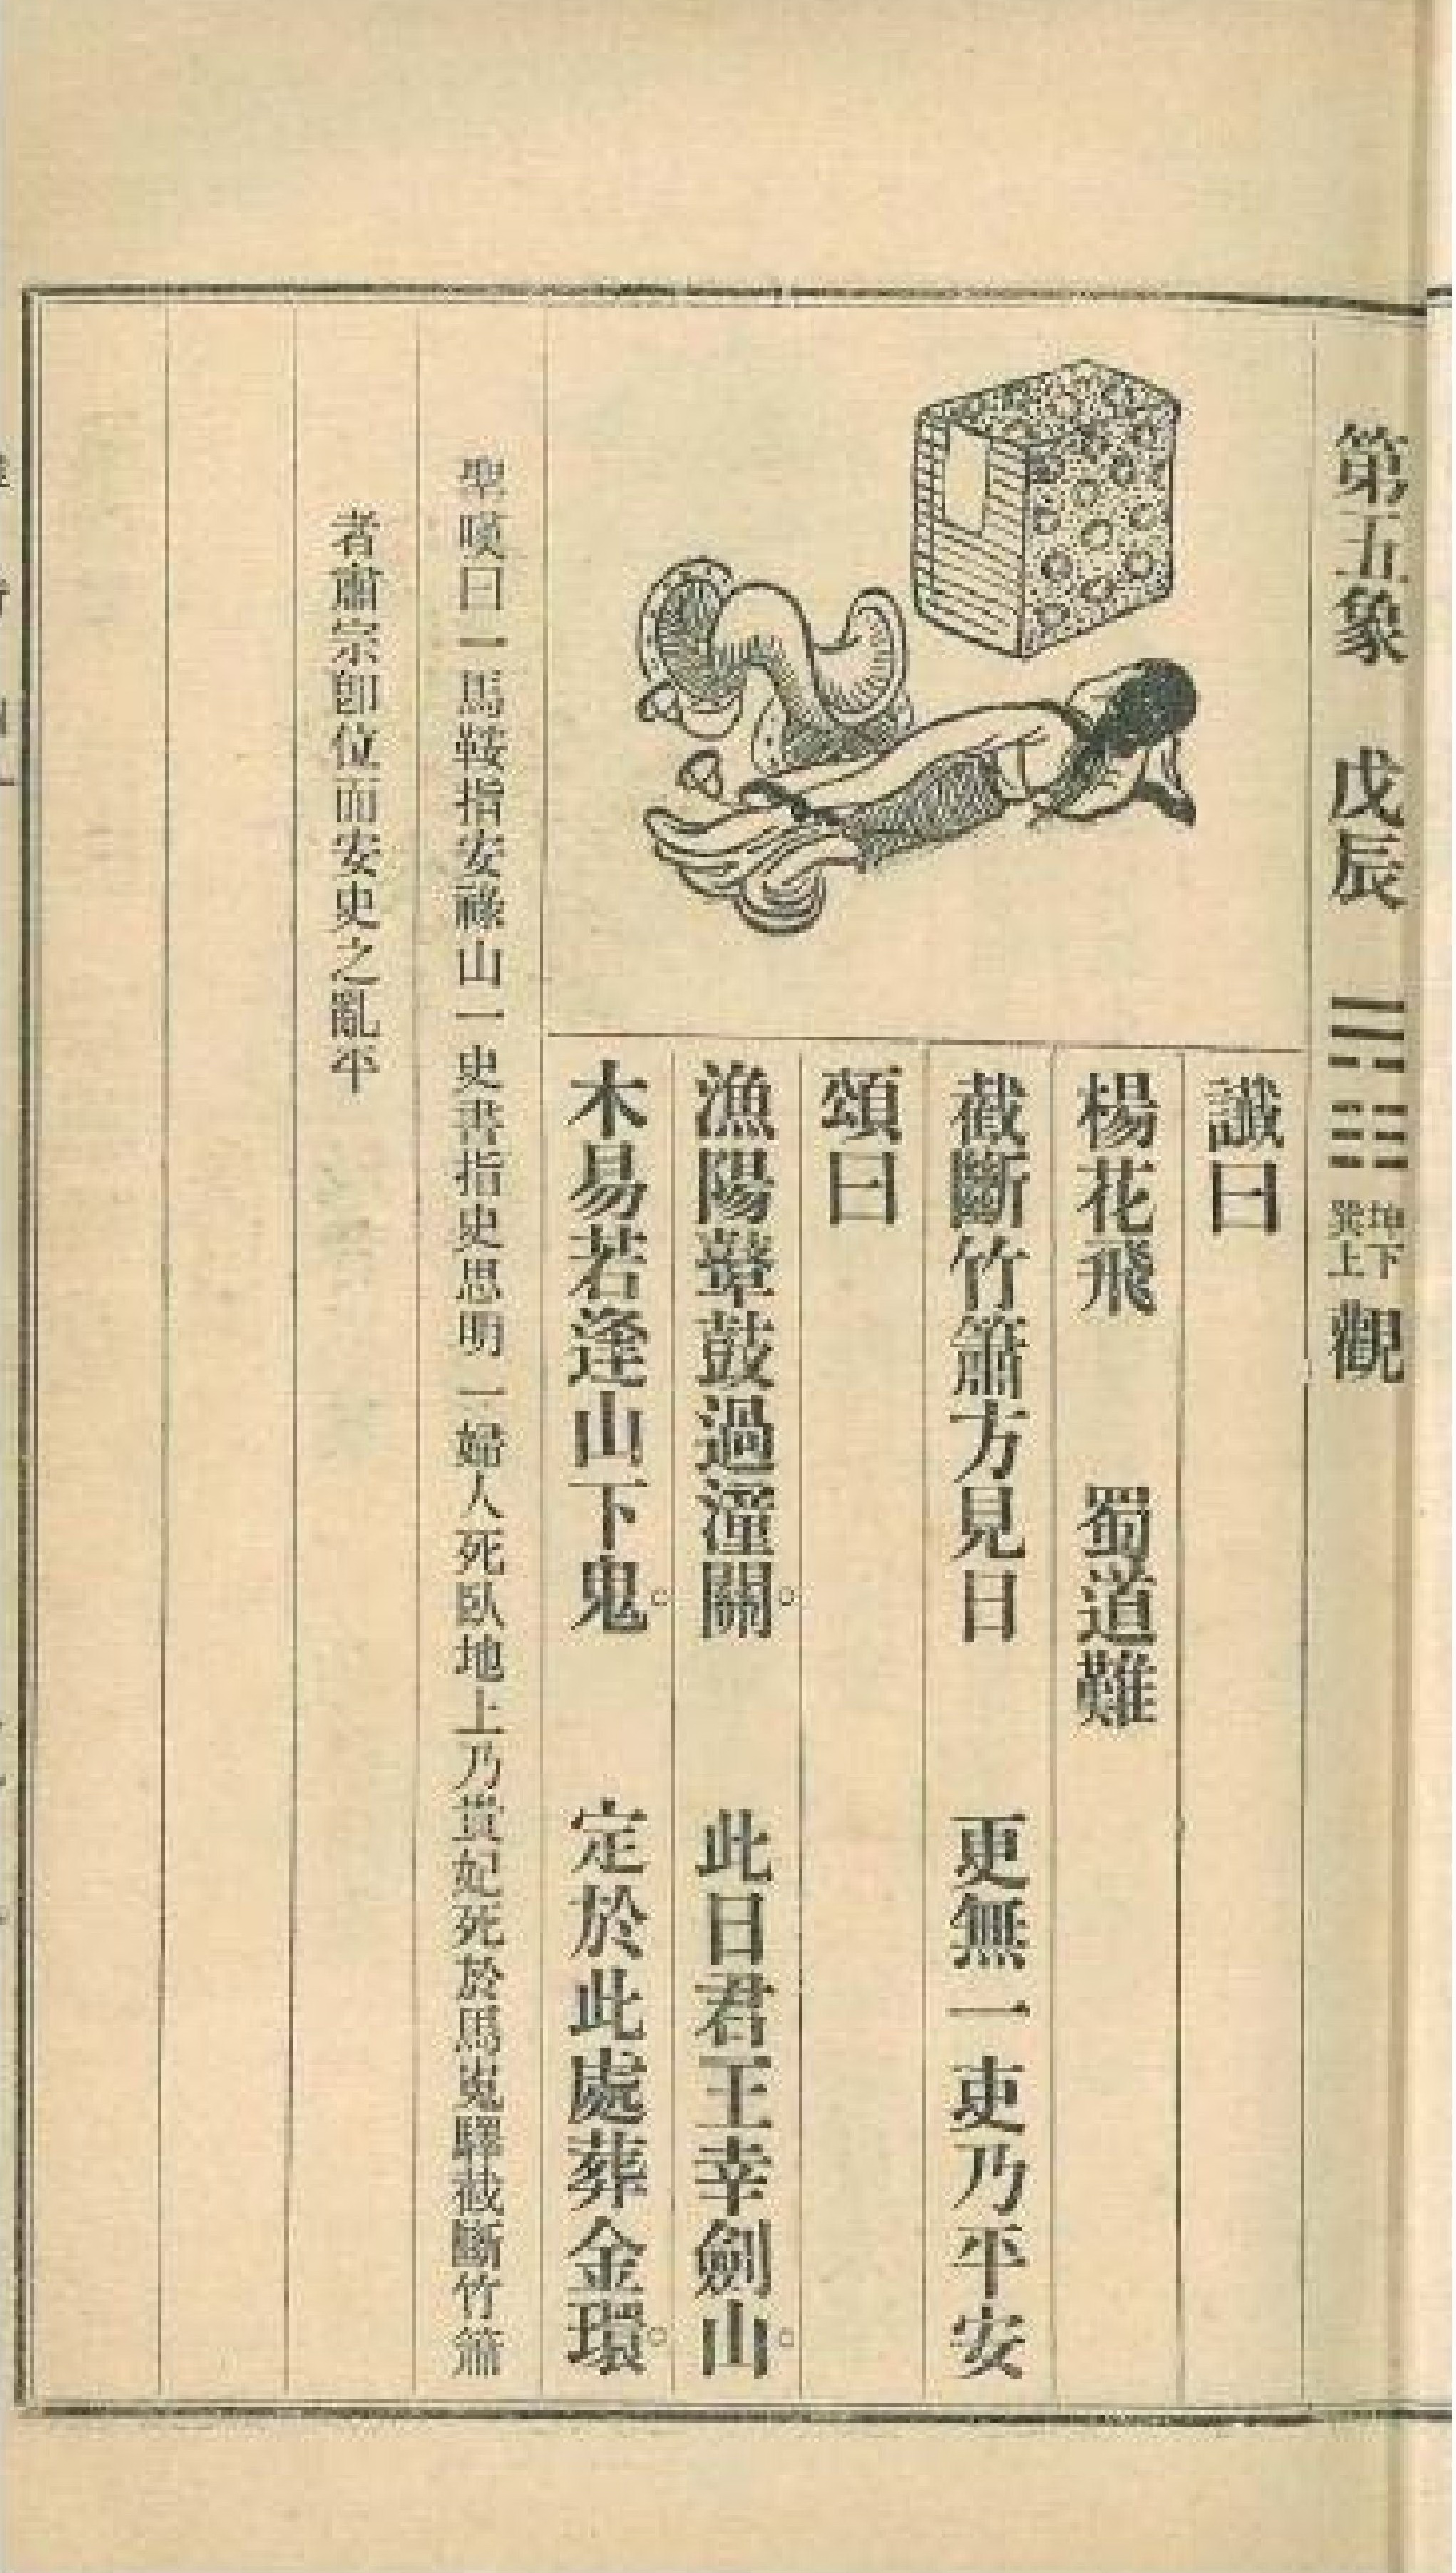 第五象 戊辰 坤下巽上 觀
讖曰
楊花飛 蜀道難
截斷竹簫方見日 更無一吏乃平安
頌曰
漁陽鼙鼓過潼關。 此日君王幸劍山。
木易若逢山下鬼。 定於此處葬金環。
聖嘆曰一馬鞍指安祿山一史書指史思明一婦人死臥地上乃貴妃死於馬嵬驛截斷竹簫
者肅宗卽位而安史之亂平